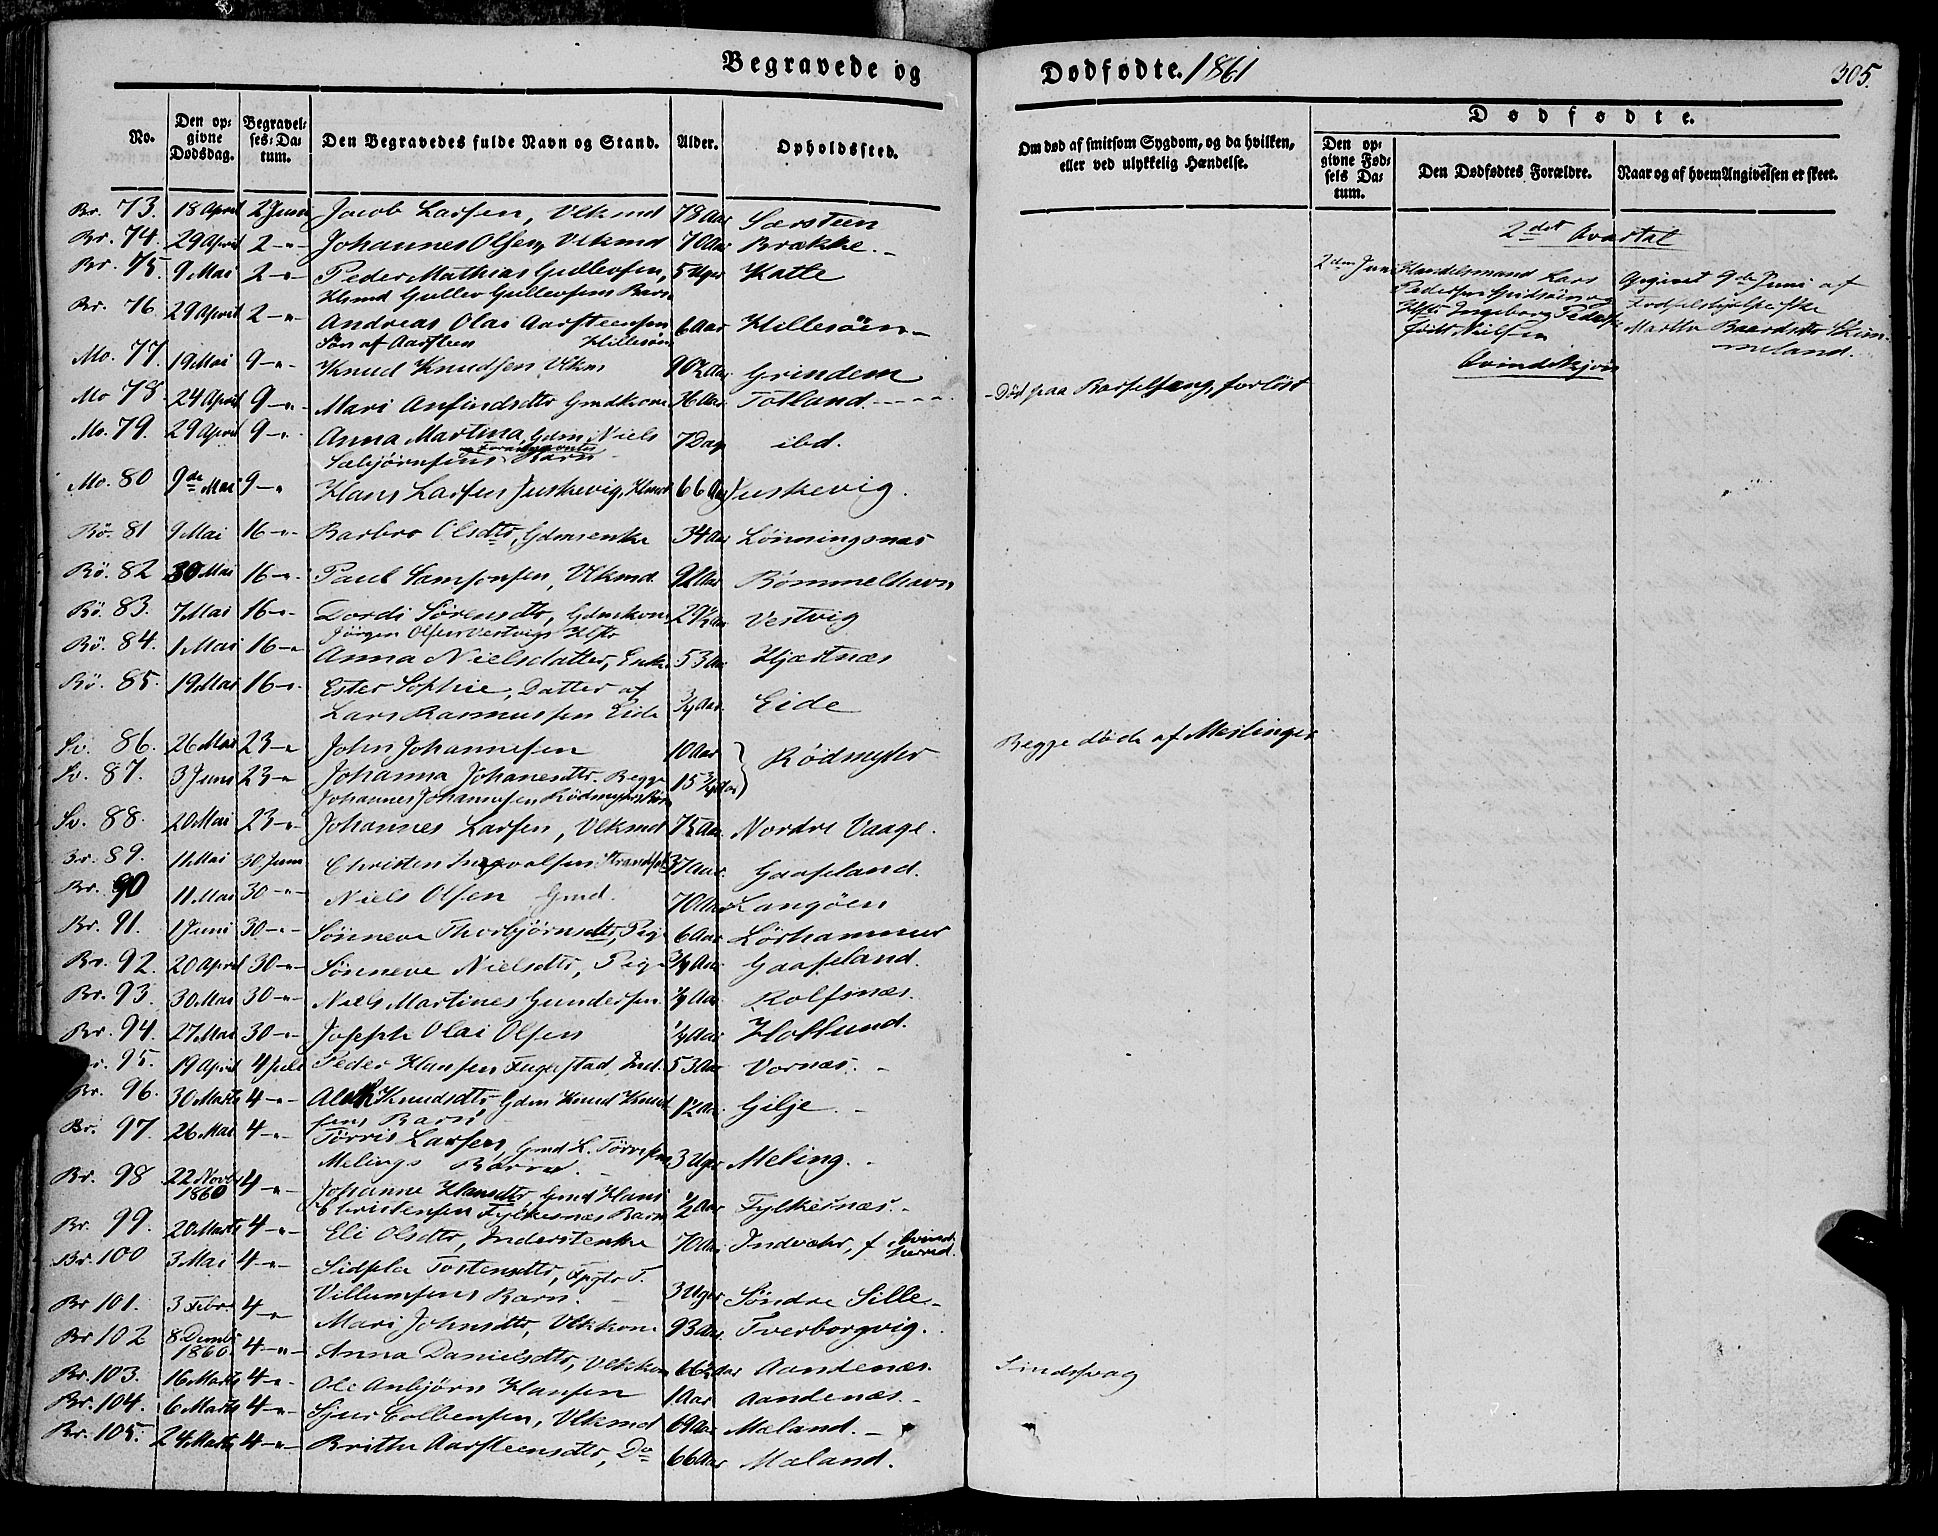 Begravede og
Dødfødte. 1861
305.
No.
Den opgivne Dødsdag.
Begravelses-Datum.
Den Begravedes fulde Navn og Stand.
Alder.
Opholdssted.
Om død af smitsom Sygdom, og da hvilken, eller ved ulykkelig Hændelse.
Dødfødte.
Den opgivne Fødsels Datum.
Den Dødfødtes Forældre.
Naar og af hvem Angivelsen er skeet.
Br. 73. 18 April 2 Juni Jacob Larsen, Vlkmd 78 Aar Særsteen
Br. 74. 29 April 2 -"- Johannes Olsen, Vlkmd 70 Aar Brække. -
Br. 75. 9 Mai 2 -"- Peder Mathias Gullevsen, 5 Uger Katle
Hsmd Gullev Gullevsens Barn
Br. 76. 29 April 2 -"- Andreas Olai Aarsteensen 6 Aar Hillesøen -
Søn af Aarsteen Hillesøen
Mo. 77. 19 Mai 9 -"- Knud Knudsen Vlkm 90½ Aar Grindem
Mo 78. 24 April 9 -"- Mari Anfindsdtr Gmdkone 36 Aar Totland. - Død paa Barselseng, forløst
Mo. 79. 29 April 9 -"- Anna Martina, Gdm. Niels 7 Dag ibd.
Sæbjørnsens Barn
Mo. 80 9de Mai 9 -" Hans Larsen Juskevig, Hmd 66 Aar Juskevig.
Bö. 81 9 Mai 16 -"- Barbro Olsdtr, Gdmsenke 34 Aar Lönningsnæs
Bö. 82 30 Mai 16 -"- Paul Samsonsen, Vlkmd. 92 Aar Bömmelhavn
Bö. 83. 7 Mai 16 -"- Dordi Sörensdtr, Gdmskone 29½ Aar Vestvig
Jörgen Olsen Vestvigs Hstr
Bö. 84. 1 Mai 16 -" Anna Nielsdatter, Enke 53 Aar Hjartnæs
Bö. 85. 19 Mai 16 -"- Ester Sophie, Datter af ¾ Aar. Eide
Lars Rasmussen Eide
Sv. 86. 26 Mai 23 -" John Johannesen 10 Aar } Rödmyhr Begge döde af Meslinger
Sv. 87. 3 Juni 23 -" Johanna Johanesdtr. Begge 15¾ Aar
Johannes Johannesen Rödmyhrs Börn
Sv. 88. 20 Mai 23 -"- Johannes Larsen, Vlkmd 75 Aar Nordre Vaage.
Br. 89. 11 Mai 30 Juni Christen Ingvalsen 37 Aar. Gaaseland.
Br. 90 11 Mai 30 -"- Niels Olsen Gmd. 70 Aar Langöen
Br. 91. 1 Juni 30 -"- Sönneve Thorbjörnsdtr, Pige 6 Aar Lörhammer
Br. 92. 20 April 30 -"- Sönneve Nielsdtr, Pige ¾ Aar Gaaseland.
Br. 93. 30 Mai 30 -"- Niels Martines Gundersen Aar Rolfsnæs.
Br. 94. 27 Mai 30 -"- Joseph Olai Olsen Aar Hovlund.
Br. 95. 19 April 4 Juli Peder Hansen Fugestad, Ind. 53 Aar Vornæs. -
Br. 96. 30 Marts 4 -"- Knudsdtr Gdm Knud Knud- 12 Aar Gilje. -
sens Barn
Br. 97. 26 Mai 4 -"- Törris Larsen, Gmd L. Törresen 3 Uger Meling. -
Melings Barn. -
Br. 98 22 Novbr 1860 4 -"- Johanne Hansdtr, Gmd Hans ½ Aar Fylkesnæs. -
Christensen Fylkesnæs Barn
Br. 99. 20 Marts 4 -"- Eli Olsdtr, Inderstenke 70 Aar Indvær, f. i Kvindherred.
Br. 100 3 Mai 4 -"- Sidsela Tostensdtr, T. 3 Uger Söndre Sille -
Villumsens Barn.
Br 101. 3 Febr. 4 -" Mari Johnsdtr, Vlkkone 93 Aar. Tverborgvig.
Br 102 8 Decmbr 1860. 4 -"- Anna Danielsdtr, Vlkkone 66½ Aar Aandenæs. Sindssvag
Br. 103. 16 Marts 4 -"- Ole Anbjörn Hansen 1 Aar Aandenæs. -
Br. 104. 6 Marts 4 -"- Sjur Colbensen, Vlkmd 69 Aar Mæland. -
Br. 105. 24 Marts 4 -"- Britha Aarsteensdtr, Do 66 Aar Mæland.
2det Qvartal
2den Juni Handelsmand Lars
Pedersen og
Hstr Ingeborg Peders
født Nielsen
Qvindekjön
Angivet 9de Juni af
Fødselshjelperske
Martha Baardsdtr Skim-
meland.